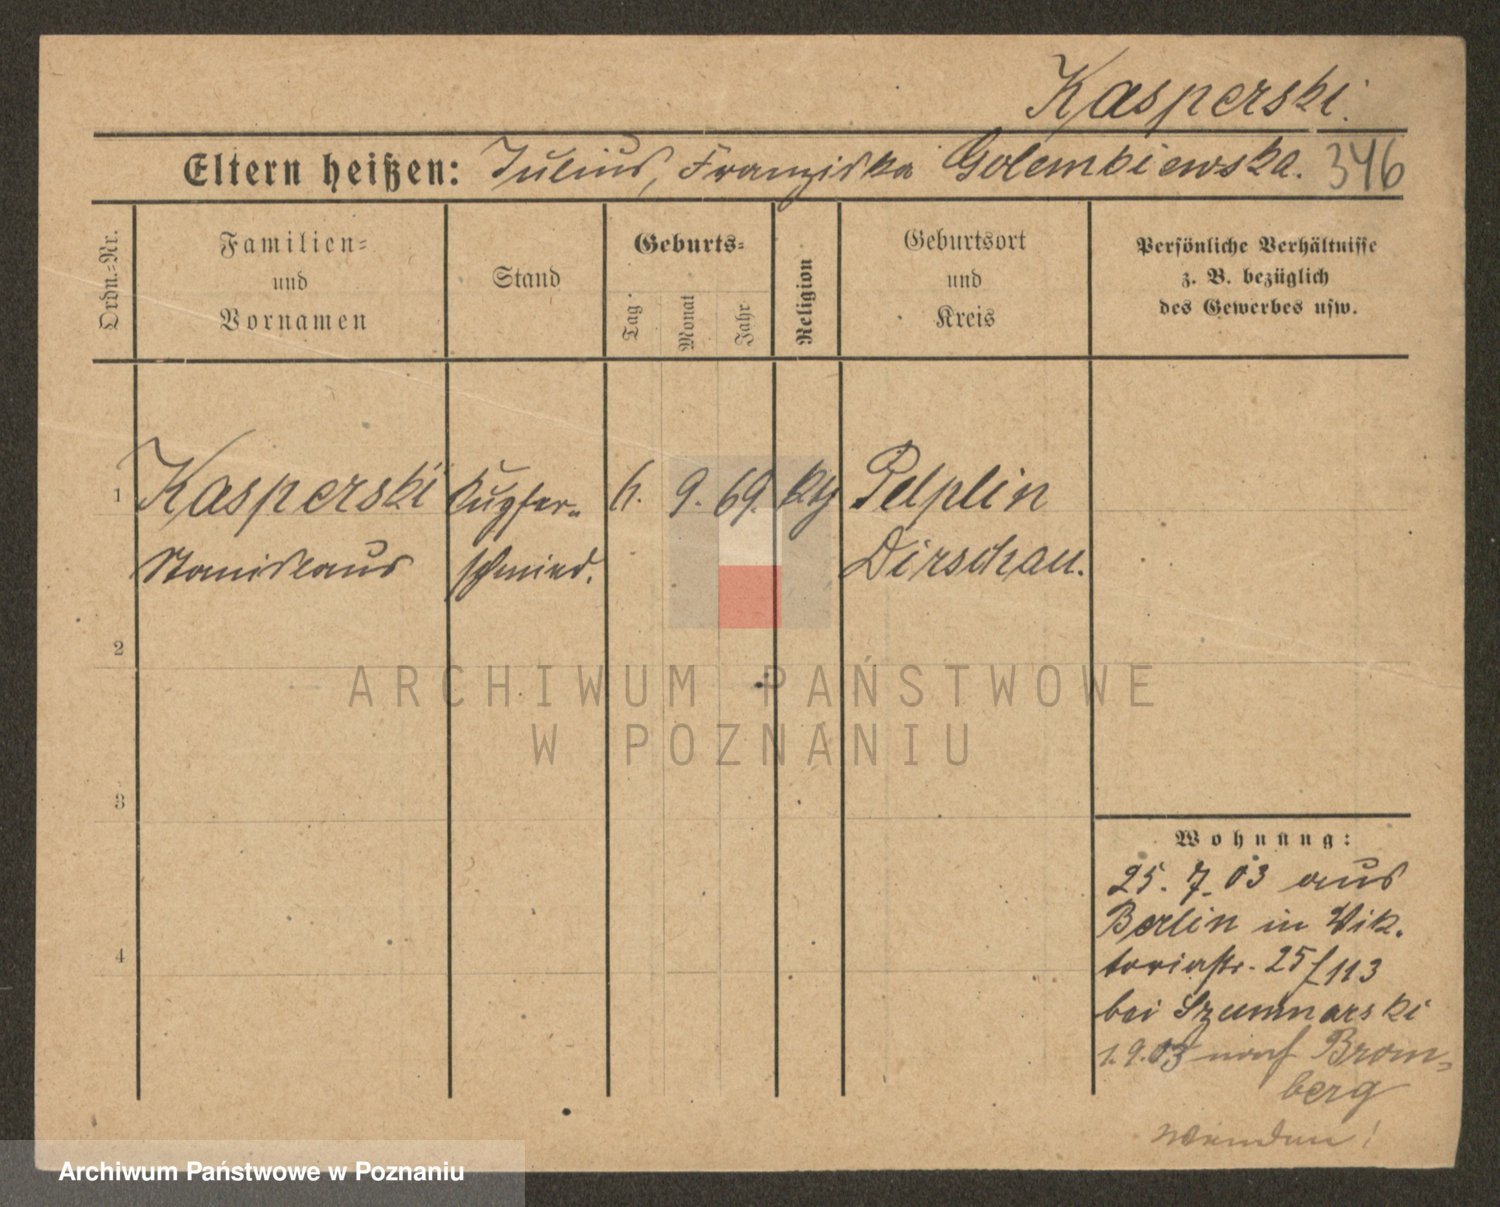 Kasperski.
Eltern heißen: Julius, Franziska Golembiewska. 346
Ordn.-Nr.
Familien-
und
Vornamen
Stand
Geburts-
Tag
Monat
Jahr
Religion
Geburtsort
und
Kreis
Persönliche Verhältnisse
z. B. bezüglich
des Gewerbes usw.
1 Kasperski Kupfer- 6. 9. 69. kg Pelplin
Stanislaus schmied. Dirschau.
2
ARCHIWUM PAŃSTWOWE
W POZNANIU
3
Wohnung:
25. 7. 03 aus
Berlin in Vik.
toriastr. 25/113
4
bei Szumnarski
1. 9. 03 nach Brom-
berg
Wenden!
Archiwum Państwowe w Poznaniu